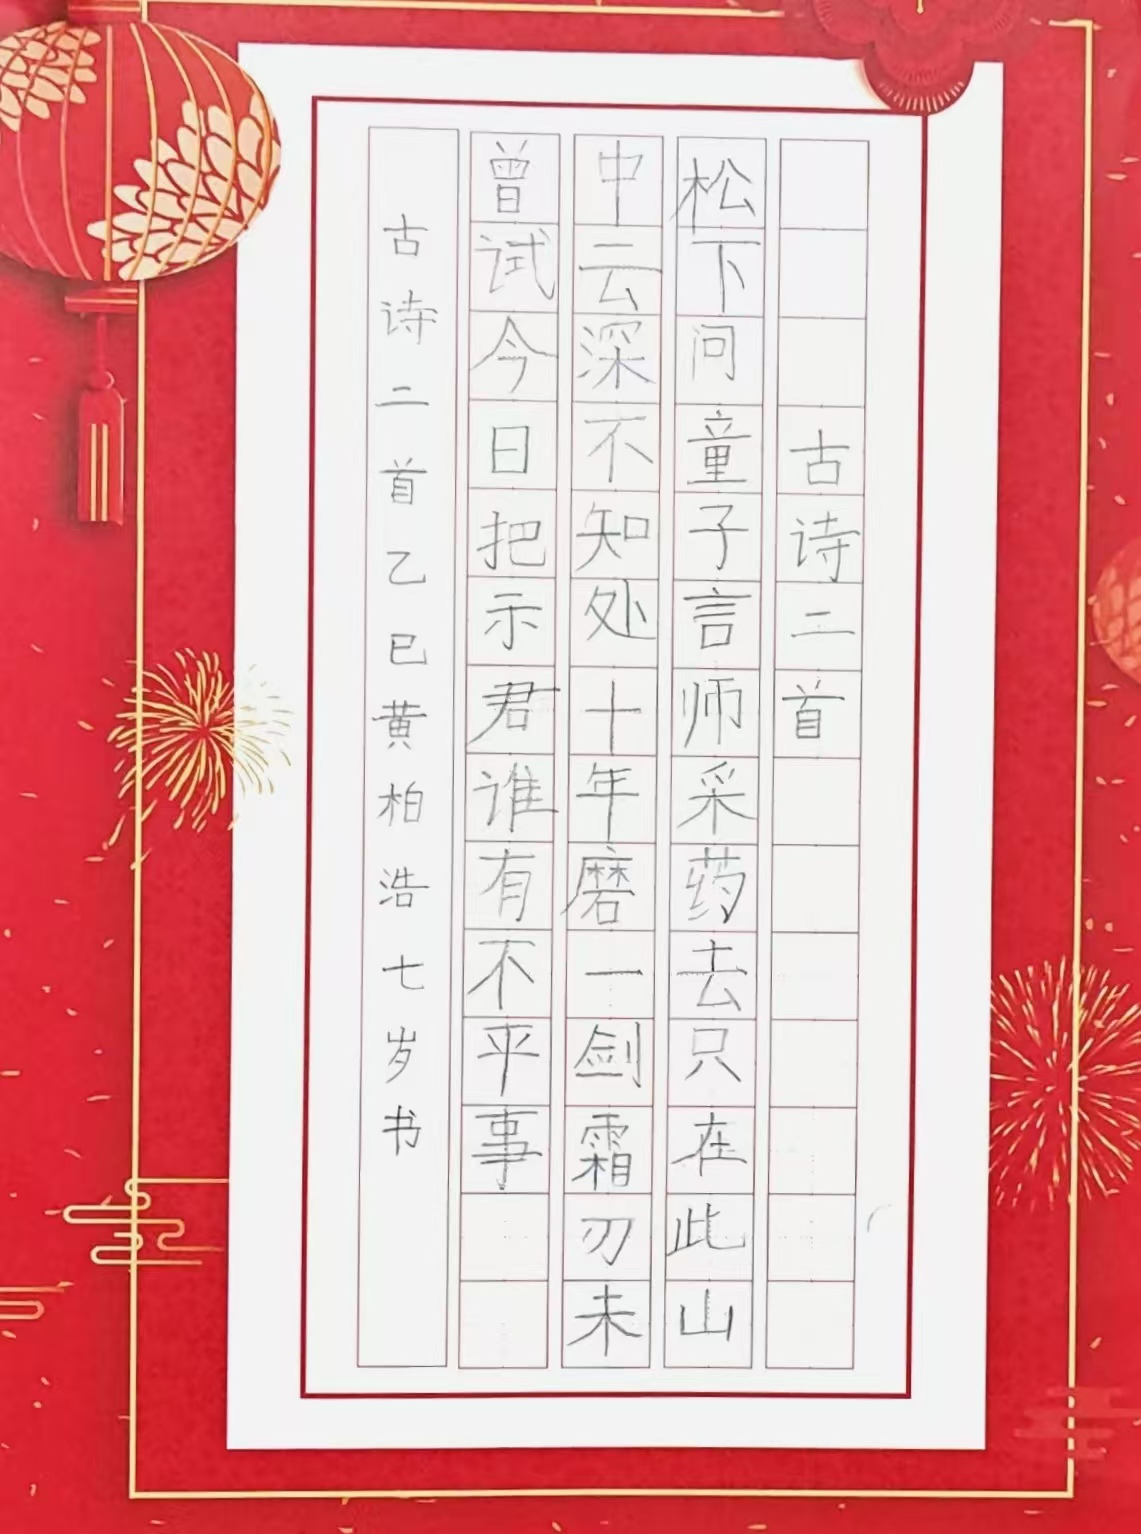 古诗二首
松下问童子言师采药去只在此山
中云深不知处十年磨一剑霜刃未
曾试今日把示君谁有不平事
古诗二首乙巳黄柏浩七岁书